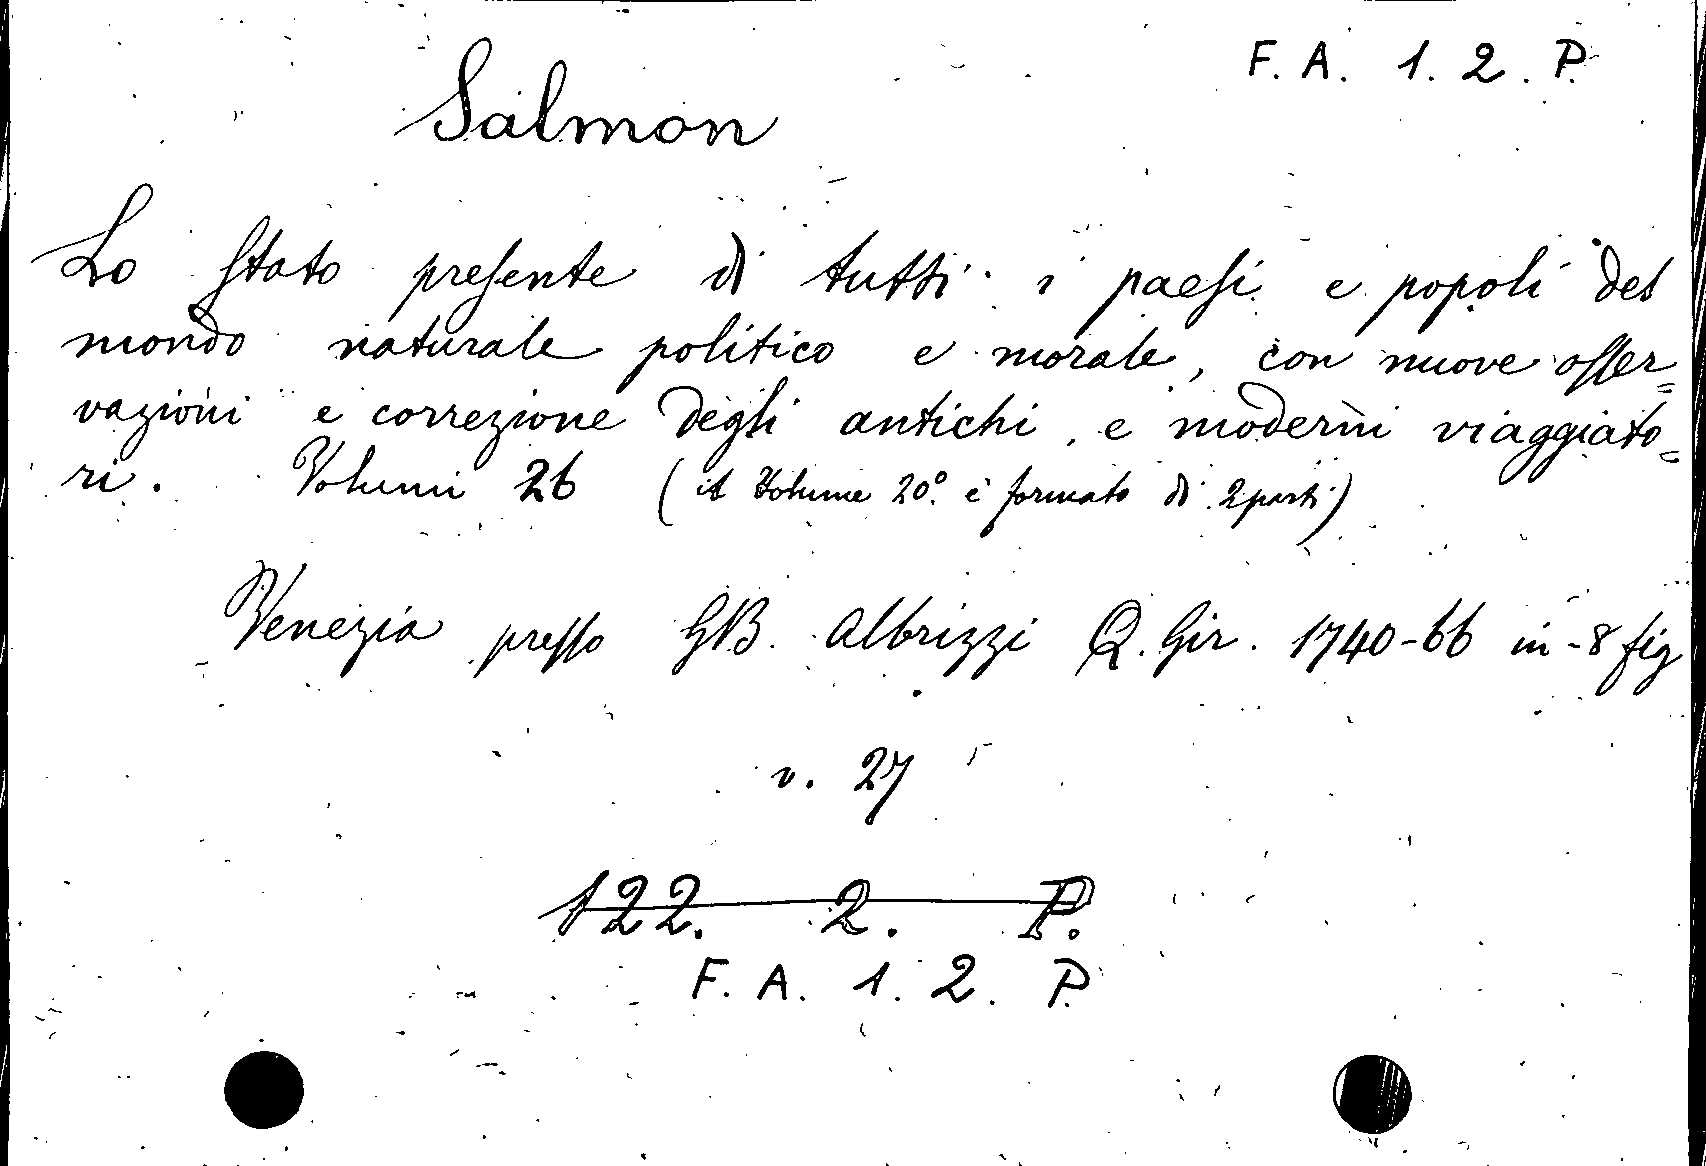 F. A. 1. 2. P.
Salmon
Lo stato presente di tutti i paesi e popoli del
mondo naturale politico e morale, con nuove osser=
vazioni e correzione degli antichi, e moderni viaggiato=
ri. Volumi 26 (il Volume 20º è formato di 2 parti)
Venezia presso GB. Albrizzi Q. Gir. 1740-66 in-8 fig
v. 27
122. 2. P.
F. A. 1. 2. P.